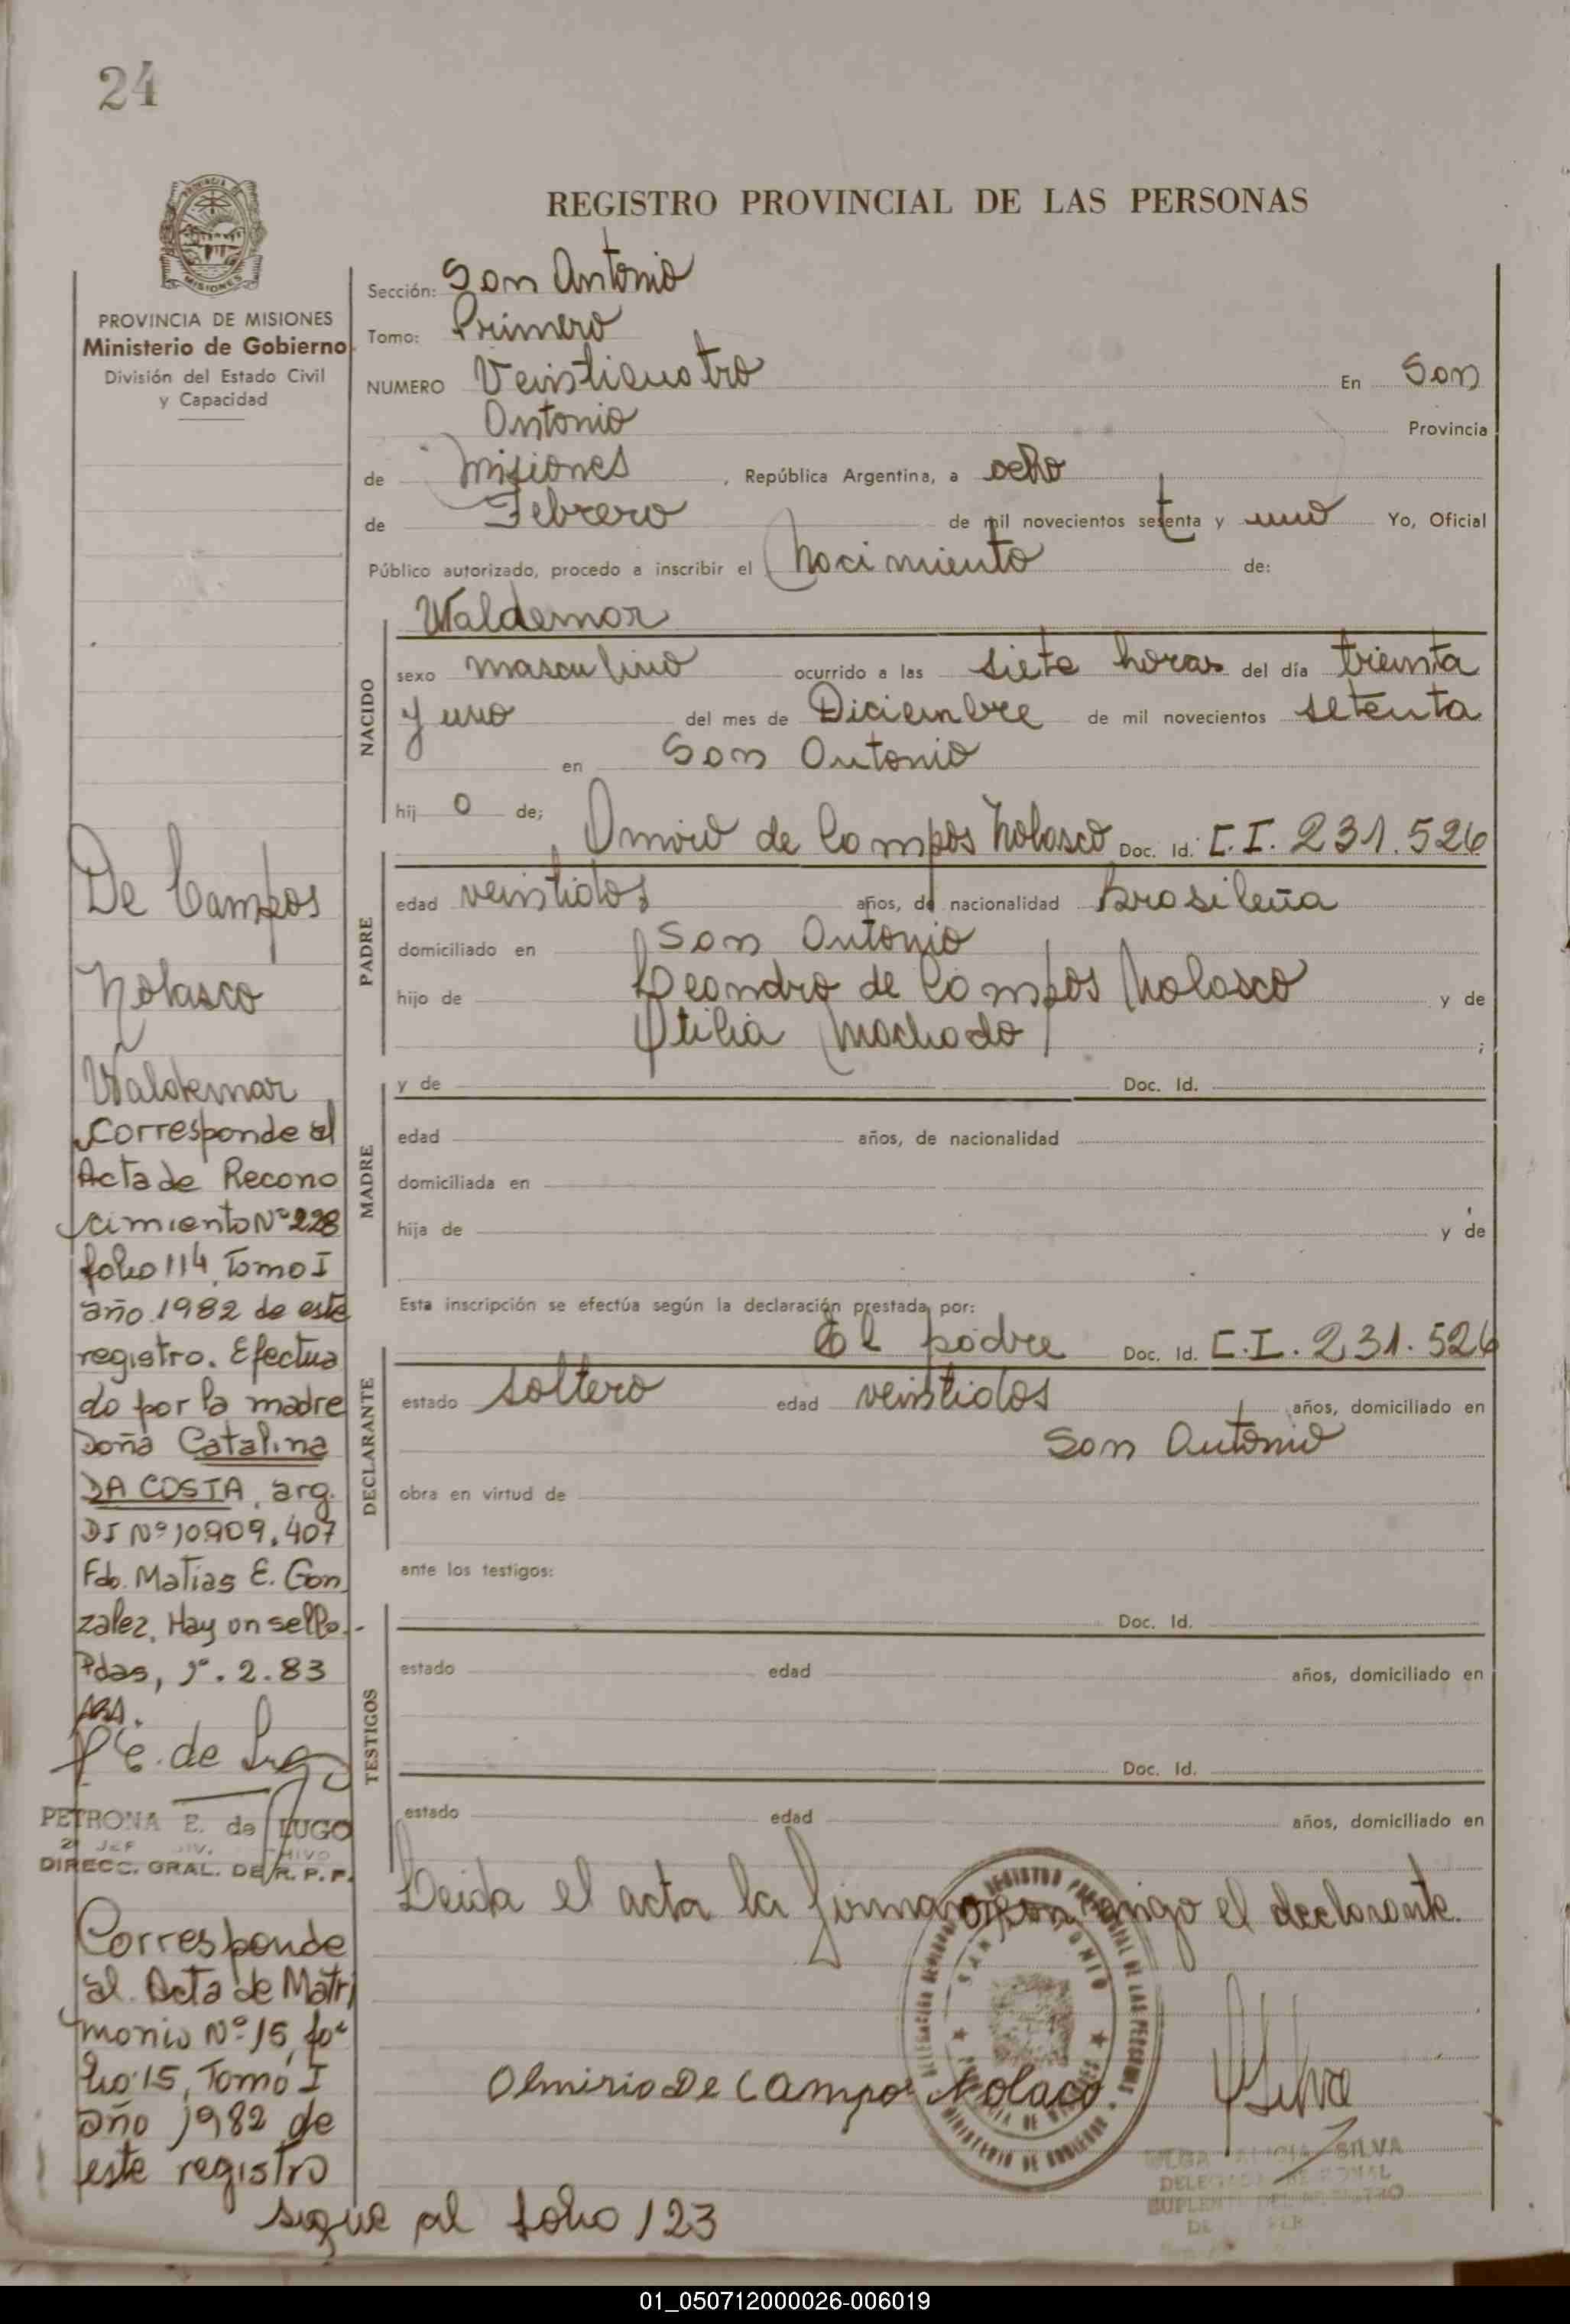 24
PROVINCIA DE MISIONES
Ministerio de Gobierno
División del Estado Civil
y Capacidad
REGISTRO PROVINCIAL DE LAS PERSONAS
Sección: San Antonio
Tomo: Primero
NUMERO Veinticuatro En San
Antonio Provincia
de Misiones, República Argentina, a ocho
de Febrero de mil novecientos setenta y uno Yo, Oficial
Público autorizado, procedo a inscribir el Nacimiento de:
Waldemar
NACIDO
sexo masculino ocurrido a las siete horas del día treinta
y uno del mes de Diciembre de mil novecientos setenta
en San Antonio
hij o de;
Omirio de Campos Nolasco Doc. Id. C.I. 231.526
PADRE
edad veintidos años, de nacionalidad Brasileña
domiciliado en San Antonio
hijo de Leandro de Campos Nolasco y de
Otilia Machado ;
y de Doc. Id.
MADRE
edad años, de nacionalidad
domiciliada en
hija de y de
Esta inscripción se efectúa según la declaración prestada por:
El padre Doc. Id. C.I. 231.526
DECLARANTE
estado soltero edad veintidos años, domiciliado en
San Antonio
obra en virtud de
ante los testigos:
Doc. Id.
TESTIGOS
estado edad años, domiciliado en
Doc. Id.
estado edad años, domiciliado en
Leida el acta la firma conmigo el declarante.
Olmirio De Campos Nolaco
Silva
OLGA ALICIA SILVA
DELEGADA REGIONAL
SUPLENTE DEL REGISTRO
De Campos
Nolasco
Waldemar
Corresponde al
Acta de Recono
cimiento Nº 228
folio 114, Tomo I
año 1982 de este
registro. Efectua
do por la madre
Doña Catalina
DA COSTA, arg.
DI Nº 10909.407
Fdo. Matias E. Gon
zalez. Hay un sello.-
Pdas, 1º.2.83
P E. de Lugo
PETRONA E. de LUGO
DIRECC. GRAL. DE R. P. P.
Corresponde
al Acta de Matri
monio Nº 15, fo
lio 15, Tomo I
año 1982 de
este registro
sigue al folio 123
01_050712000026-006019